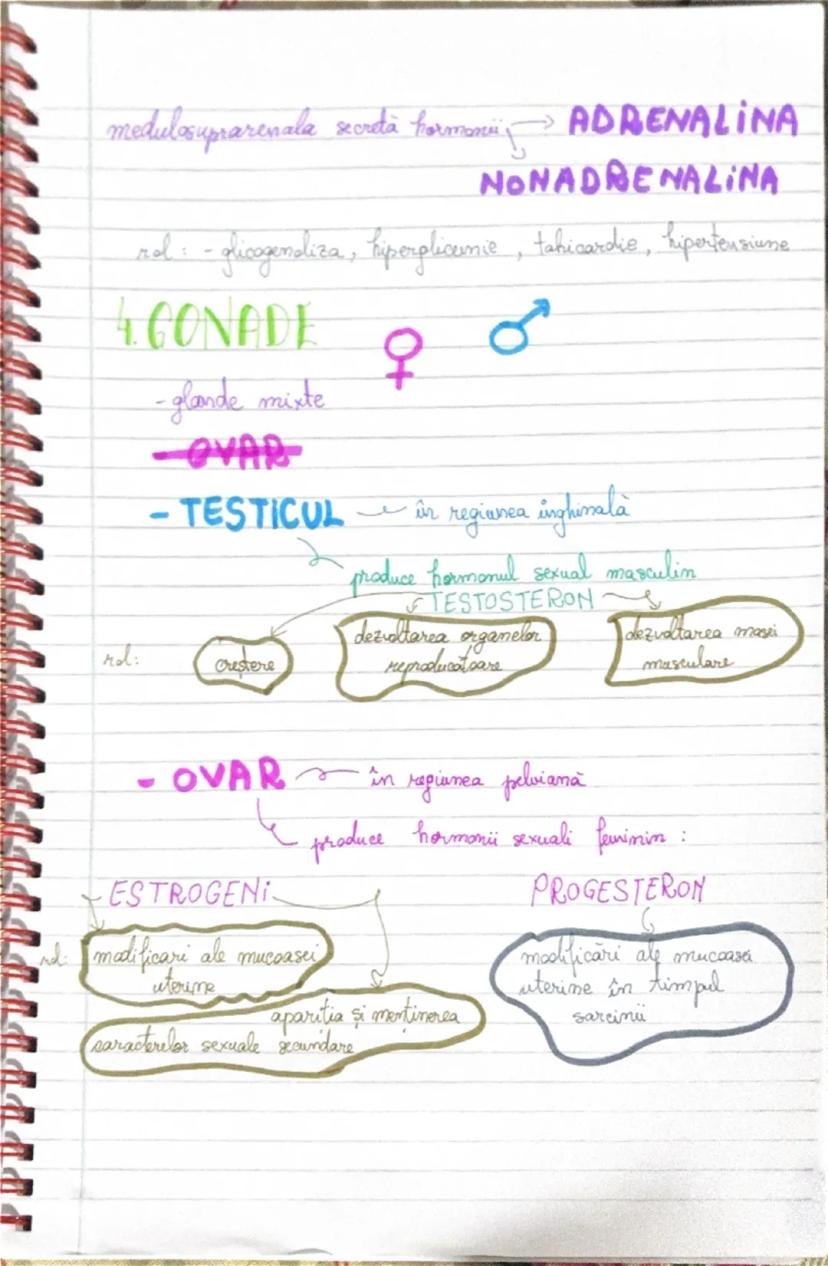 medulosuprarenala secretă hormonii → ADRENALINA
NONADRENALINA
rol: - glicogenoliza, hiperglicemie, tahicardie, hipertensiune
4. GONADE ♀ ♂
- glande mixte
- OVAR
- TESTICUL în regiunea inghinală
produce hormonul sexual masculin
TESTOSTERON
rol: creștere dezvoltarea organelor reproducătoare dezvoltarea masei musculare
- OVAR în regiunea pelviană
produce hormonii sexuali feminin:
ESTROGENI PROGESTERON
rol: modificari ale mucoasei
uterine
apariția și menținerea
caracterelor sexuale secundare
modificări ale mucoasei
uterine în timpul
sarcinii